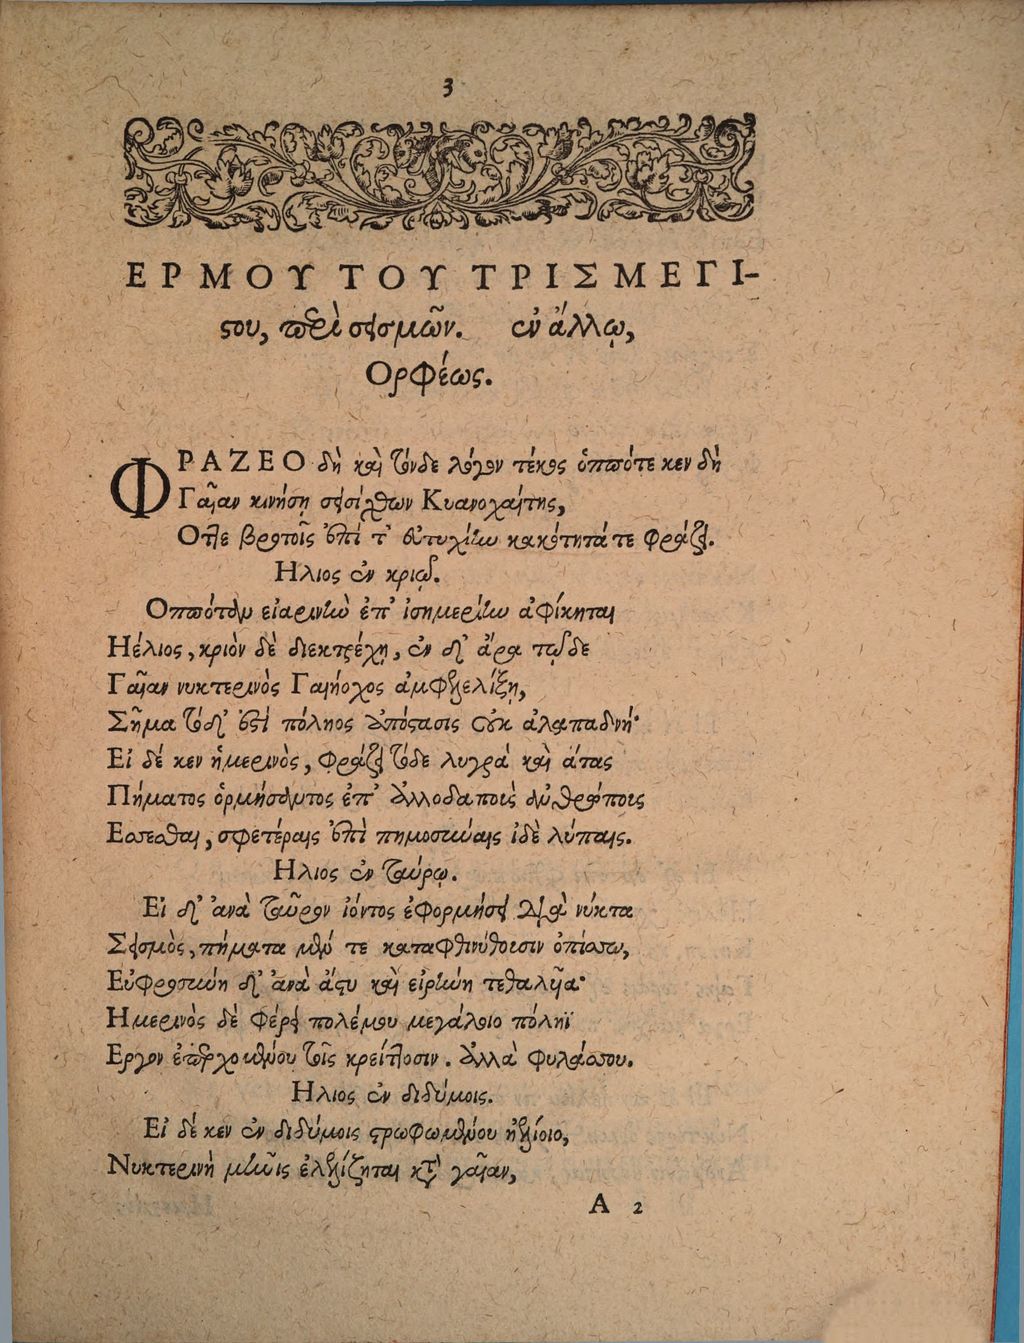 3
ΕΡΜΟΥ ΤΟΥ ΤΡΙΣΜΕΓΙ-
στου, περὶ σεισμῶν. ἐν ἄλλῳ,
Ορφέως.
ΦΡΑΖΕΟ δὴ καὶ τόνδε λόγον τέκος ὁππότε κεν δὴ
Γαῖαν κινήσῃ σεισίχθων Κυανοχαίτης,
Οτἰε βροτοῖς ἐπὶ τ' εὐτυχίην κακότητά τε φράζει.
Ηλιος ἐν κριῷ.
Οππόταν εἰαρινὴν ἐπ' ἰσημερίην ἀφίκηται
Ηέλιος, κριὸν δὲ διεκτρέχῃ, ἐν δ' ἄρα τῷδε
Γαῖαν νυκτερινὸς Γαιήοχος ἀμφιελίξῃ,
Σῆμα τόδ' ἐστὶ πόληος ἀπόστασις οὐκ ἀλαπαδνή·
Εἰ δέ κεν ἡμερινὸς, φράζει τόδε λυγρὰ καὶ ἄτας
Πήματος ὁρμήσαντος ἐπ' ἀλλοδαποὺς ἀνθρώπους
Εσσεσθαι, σφετέραις ἐπὶ πημοσύναις ἰδὲ λύπαις.
Ηλιος ἐν ταύρῳ.
Εἰ δ' ἀνὰ ταῦρον ἰόντος ἐφορμήσει διὰ νύκτα
Σεισμὸς, πήματα μέν τε καταφθινύθουσιν ὀπίσσω,
Εὐφροσύνη δ' ἀνὰ ἄστυ καὶ εἰρήνη τεθαλυῖα·
Ημερινὸς δὲ φέρει πολέμου μεγάλοιο πόληϊ
Εργον ἐπερχομένου τοῖς κρείττοσιν. ἀλλὰ φυλάσσου.
Ηλιος ἐν διδύμοις.
Εἰ δέ κεν ἐν διδύμοις στρωφωμένου ἠελίοιο,
Νυκτερινὴ μῆνις ἐλελίζηται κατὰ γαῖαν,
A 2